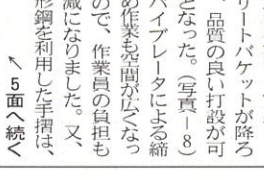 リートバケットが降ろ
、品質の良い打設が可
となった。（写真―8）
バイブレータによる締
め作業も空間が広くなっ
ので、作業員の負担も
減になりました。又、
形鋼を利用した手摺は、
↖5面へ続く